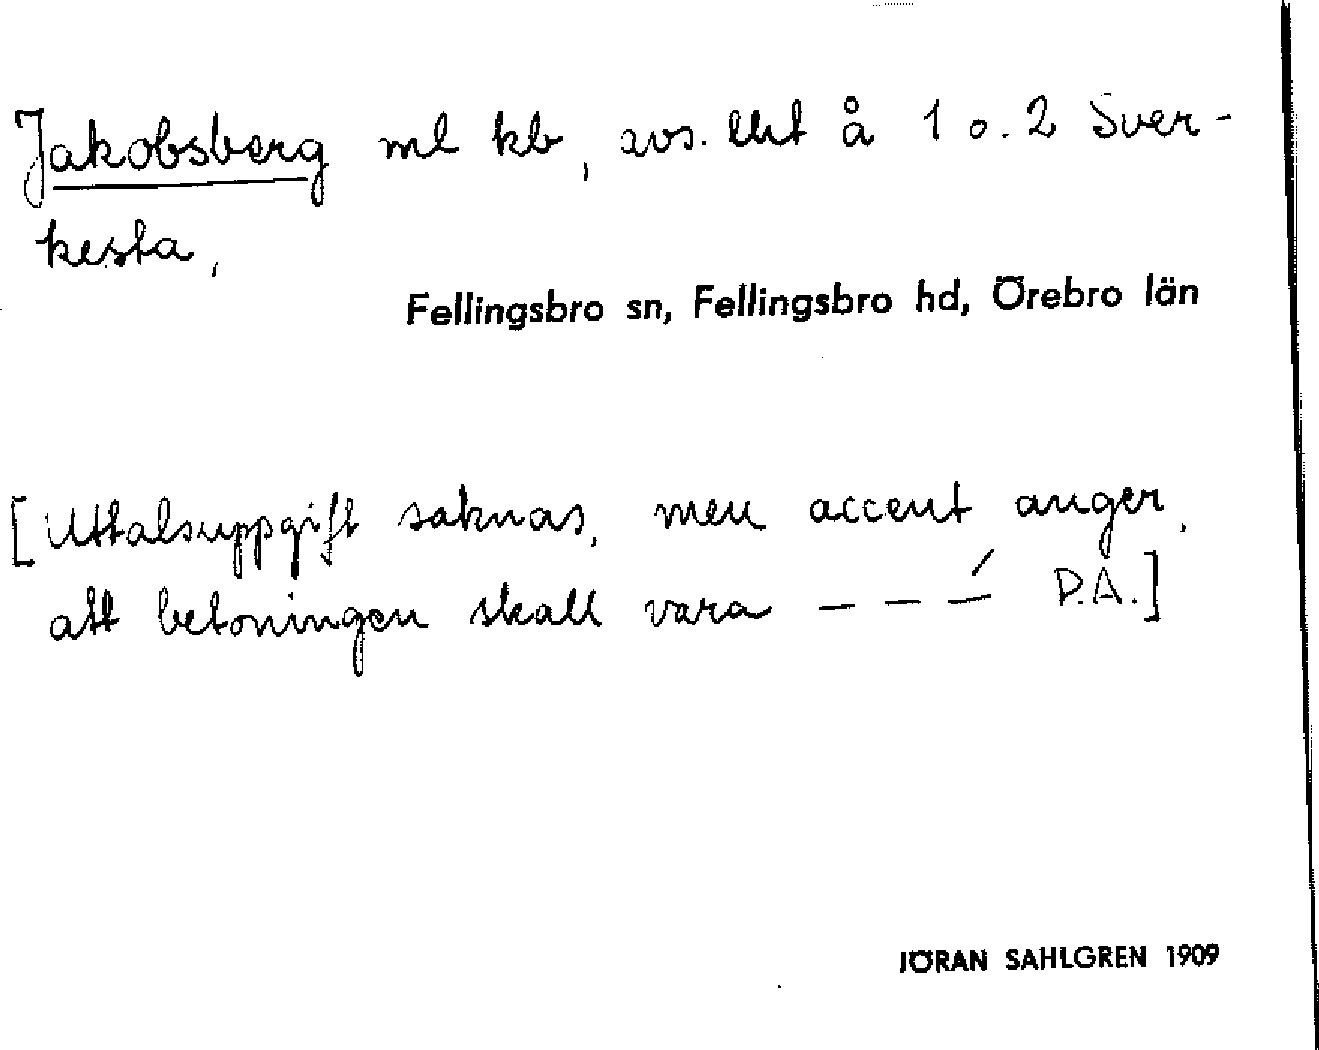 Jakobsberg ml kb, avs. lht å 1 o. 2 Sver-
kesta,
Fellingsbro sn, Fellingsbro hd, Örebro län
[Uttalsuppgift saknas, men accent anger,
att betoningen skall vara – – –́ P.A.]
JÖRAN SAHLGREN 1909